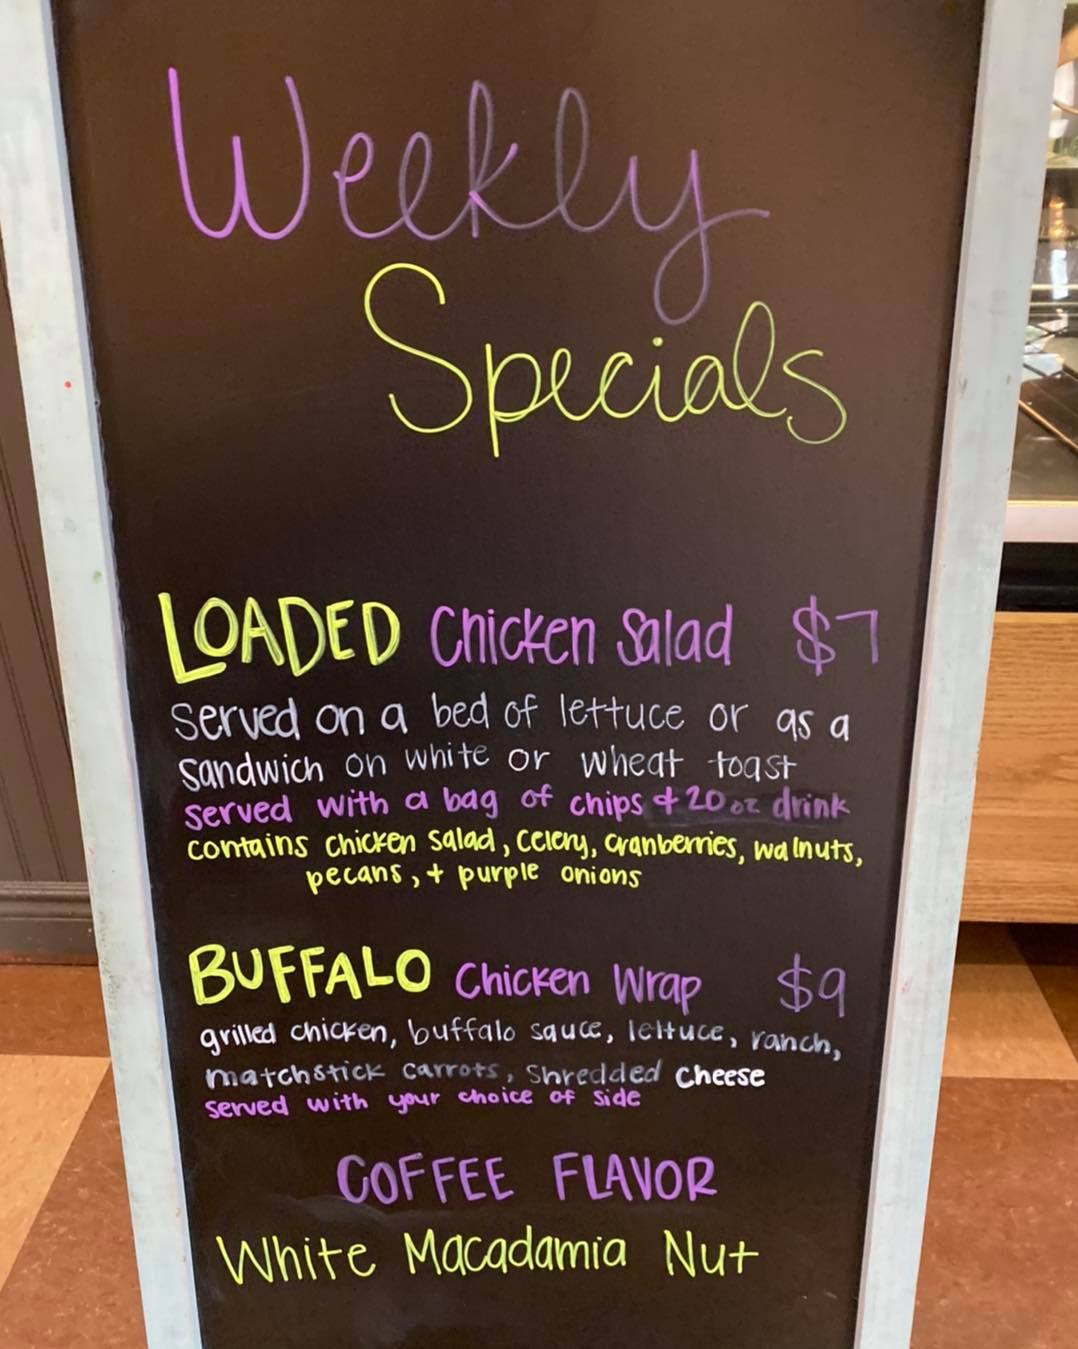 Weekly
Specials
LOADED Chicken Salad $7
served on a bed of lettuce or as a
sandwich on white or wheat toast
served with a bag of chips + 20 oz drink
contains chicken salad, celery, cranberries, walnuts,
pecans, + purple onions
BUFFALO Chicken Wrap $9
grilled chicken, buffalo sauce, lettuce, ranch,
matchstick carrots, shredded cheese
served with your choice of side
COFFEE FLAVOR
White Macadamia Nut